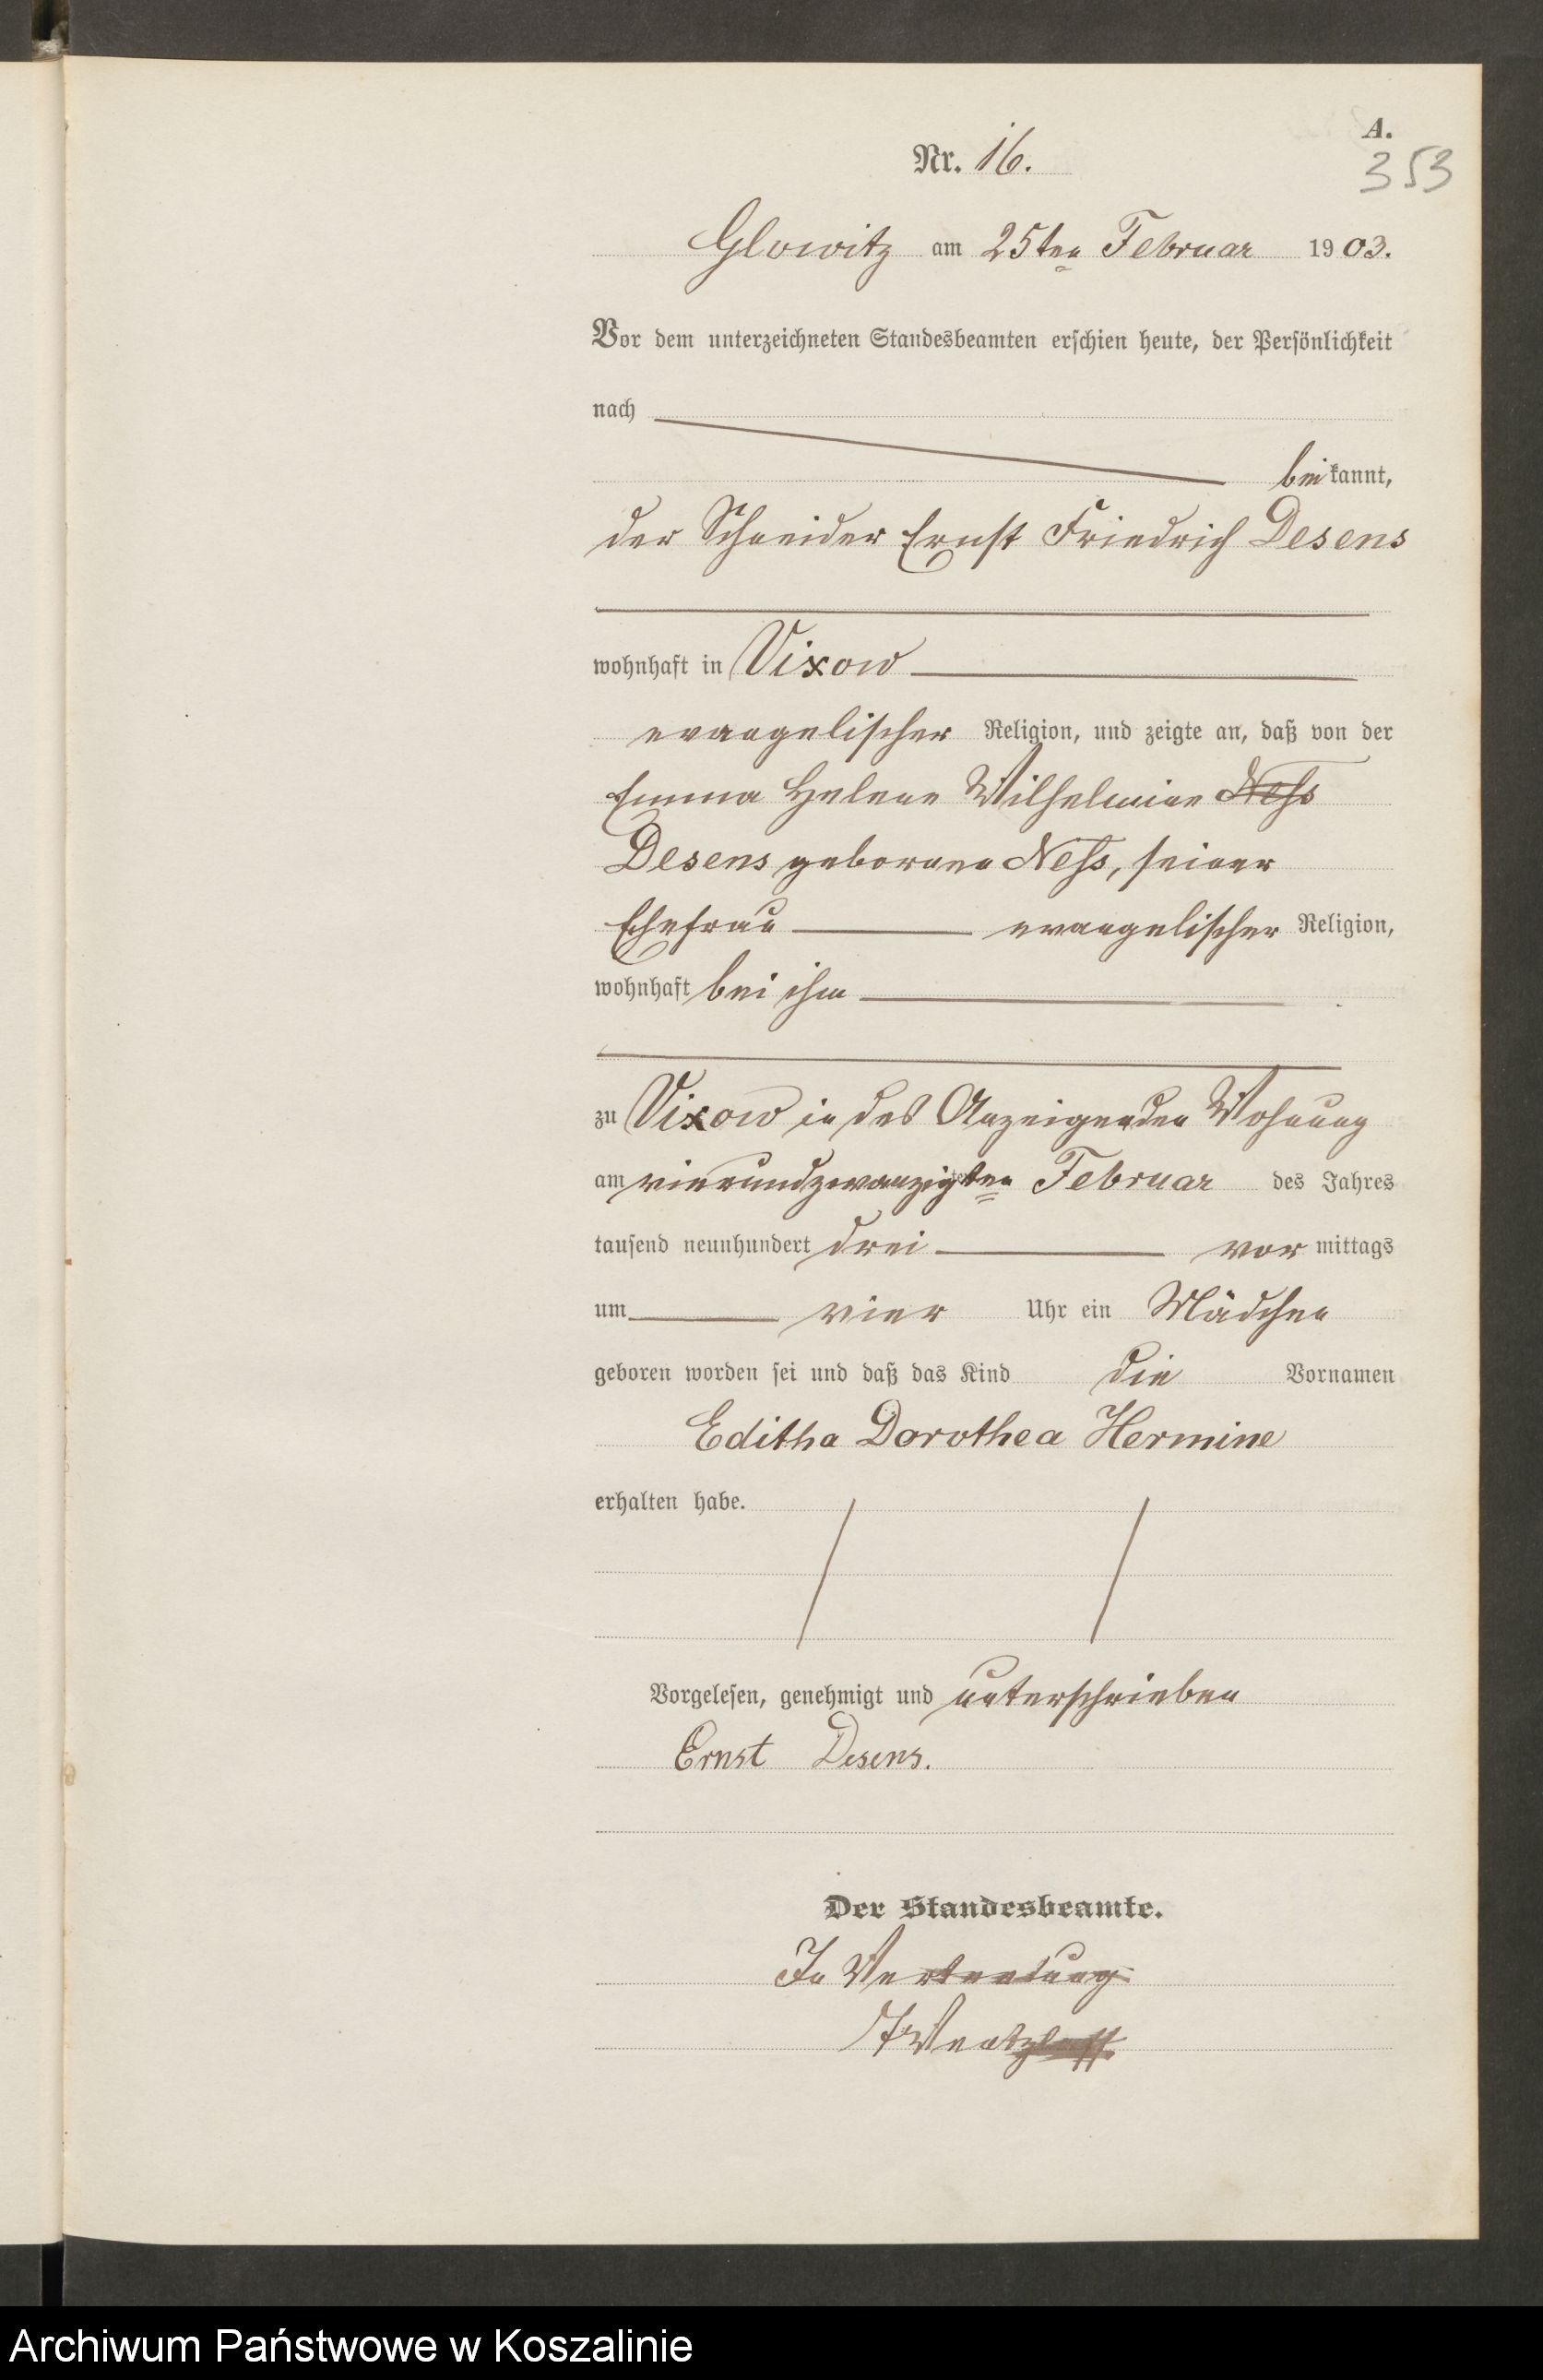 A.
Nr. 16.
353
Glowitz am 25ten Februar 1903.
Vor dem unterzeichneten Standesbeamten erschien heute, der Persönlichkeit
nach
bekannt,
der Schneider Ernst Friedrich Desens
wohnhaft in Vixow
evangelischer Religion, und zeigte an, daß von der
Emma Helene Wilhelmine Neß
Desens geborene Neß, seiner
Ehefrau evangelischer Religion,
wohnhaft bei ihm
zu Vixow in des Anzeigenden Wohnung
am vierundzwanzigsten Februar des Jahres
tausend neunhundert drei vor mittags
um vier Uhr ein Mädchen
geboren worden sei und daß das Kind die Vornamen
Editha Dorothea Hermine
erhalten habe.
Vorgelesen, genehmigt und unterschrieben
Ernst Desens.
Der Standesbeamte.
In Vertretung
Archiwum Państwowe w Koszalinie